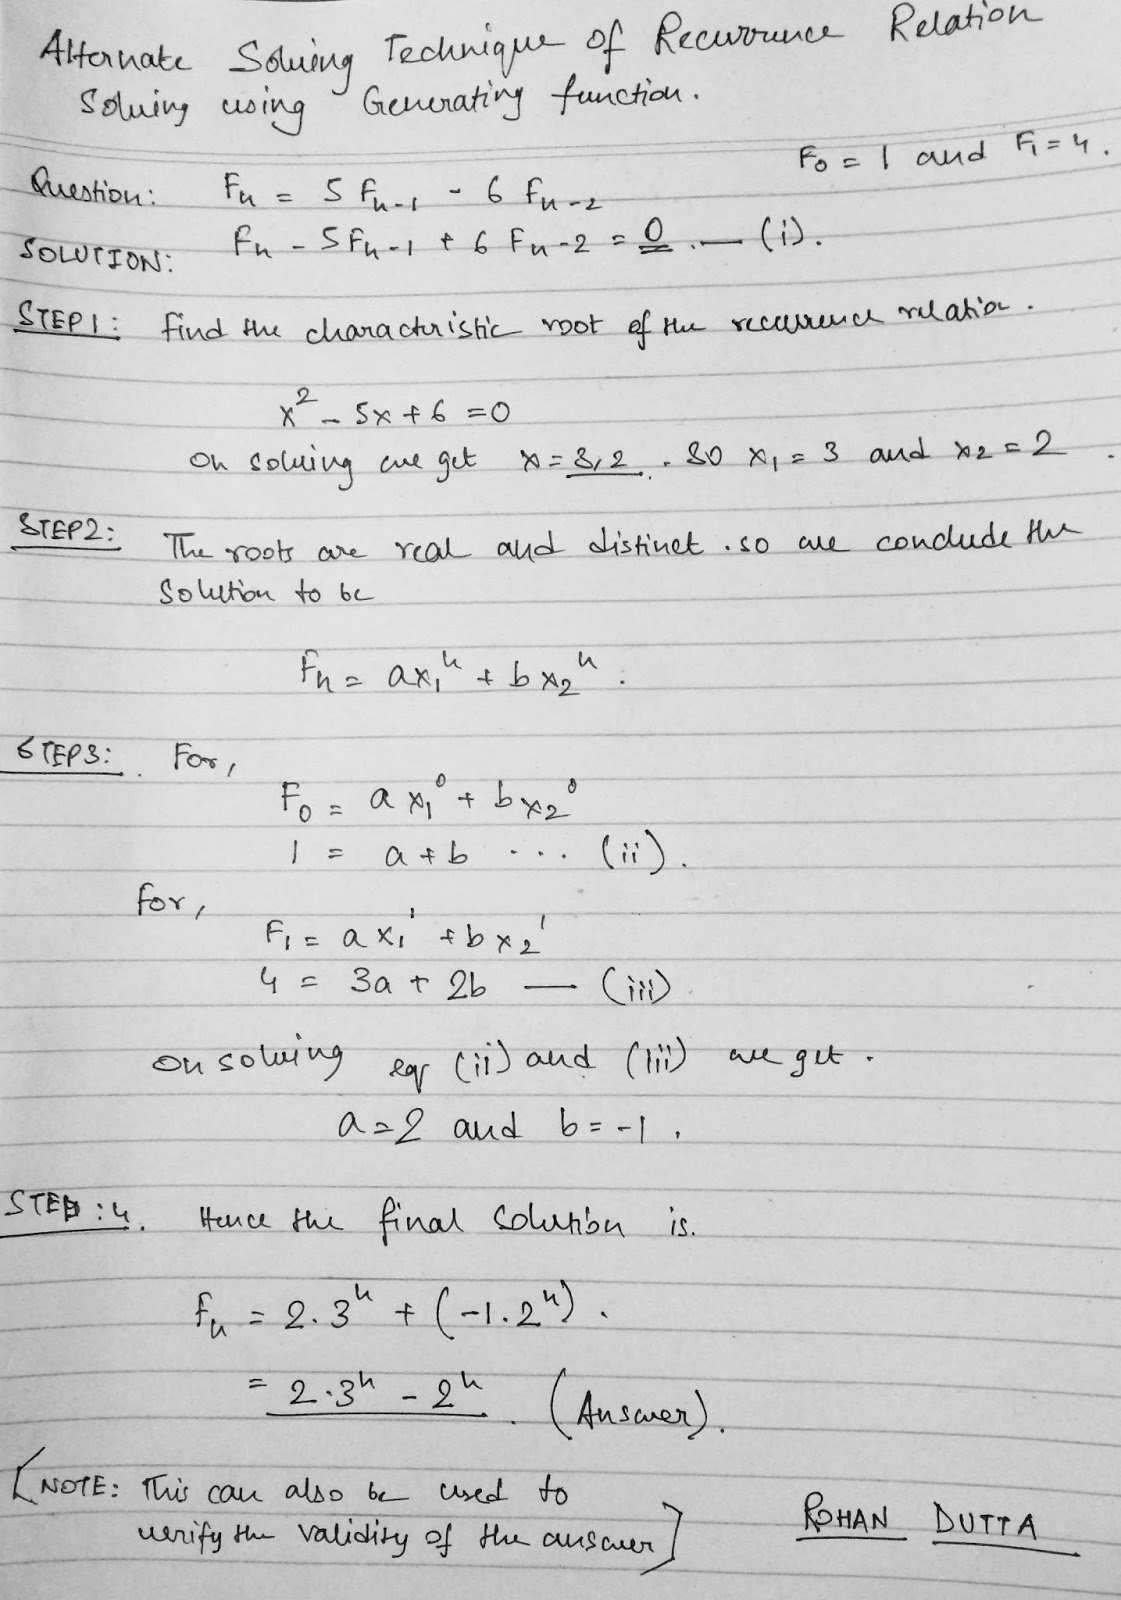 Alternate Solving Technique of Recurrence Relation
Solving using Generating function.
F₀ = 1 and F₁ = 4.
Question: Fn = 5 Fn-1 - 6 Fn-2
SOLUTION: Fn - 5Fn-1 + 6 Fn-2 = 0. — (i).
STEP1: Find the characteristic root of the recurrence relation.
x² - 5x + 6 = 0
On solving we get x = 3,2. So x₁ = 3 and x₂ = 2.
STEP2: The roots are real and distinct. so we conclude the
Solution to be
Fn = ax₁ⁿ + bx₂ⁿ.
STEP3: For,
F₀ = a x₁⁰ + bx₂⁰
1 = a + b ... (ii).
For,
F₁ = a x₁¹ + b x₂¹
4 = 3a + 2b — (iii)
On solving eq (ii) and (iii) we get.
a = 2 and b = -1.
STEP:4. Hence the final solution is.
Fn = 2.3ⁿ + (-1.2ⁿ).
= 2.3ⁿ - 2ⁿ. (Answer).
[NOTE: This can also be used to
verify the validity of the answer]
ROHAN DUTTA